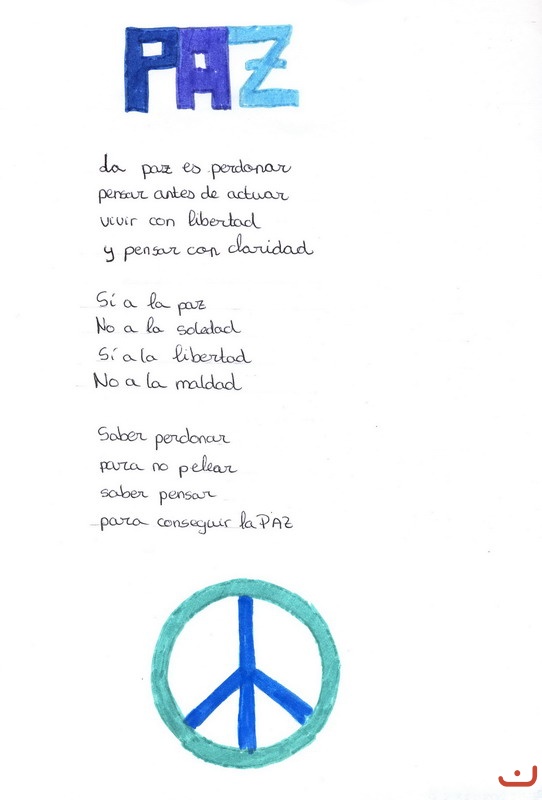 PAZ
La paz es perdonar
pensar antes de actuar
vivir con libertad
y pensar con claridad
Sí a la paz
No a la soledad
Sí a la libertad
No a la maldad
Saber perdonar
para no pelear
saber pensar
para conseguir la PAZ